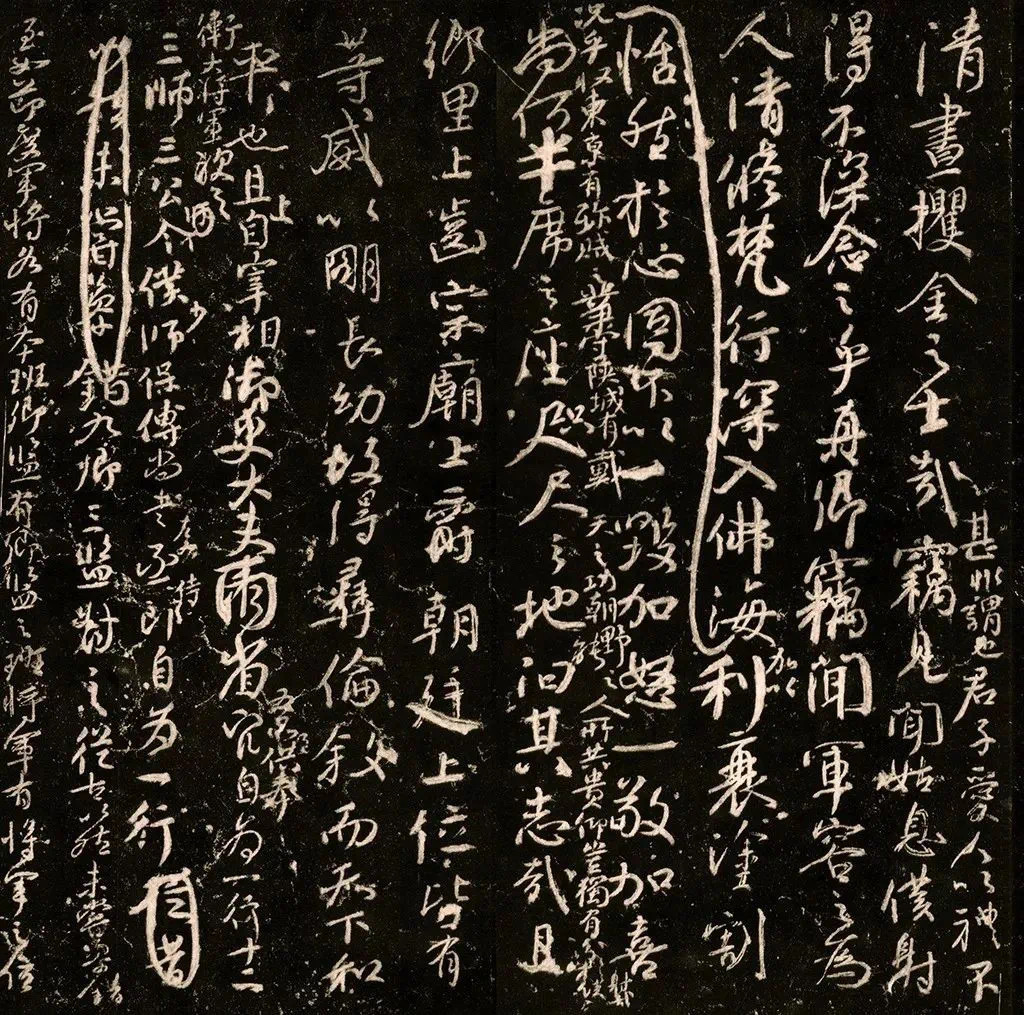 甚非謂也君子愛人以禮不
清晝攫金之士哉竊見聞姑息僕射
得不深念之乎再卿竊聞軍容之為
人清修梵行深入佛海利衰塗割
加以
恬然於心固不以一毀加怒一敬加喜
況乎收東京有殄賊之業守陝城有戴天之功朝野之人所共貴仰豈獨有分於僕射哉
尚何半席之座咫尺之地汩其志哉且
鄉里上齒宗廟上爵朝廷上位皆有
等威以明長幼故得彝倫敘而天下和
平也且上自宰相御史大夫兩省官自為一行十二
五品供奉
衛大將軍次之
三師三公令僕少師保傅尚書丞郎自為一行
左右侍
錯九卿三監對之從古以然未嘗參錯
至如節度軍將各有本班卿監有卿監之班將軍有將軍之位